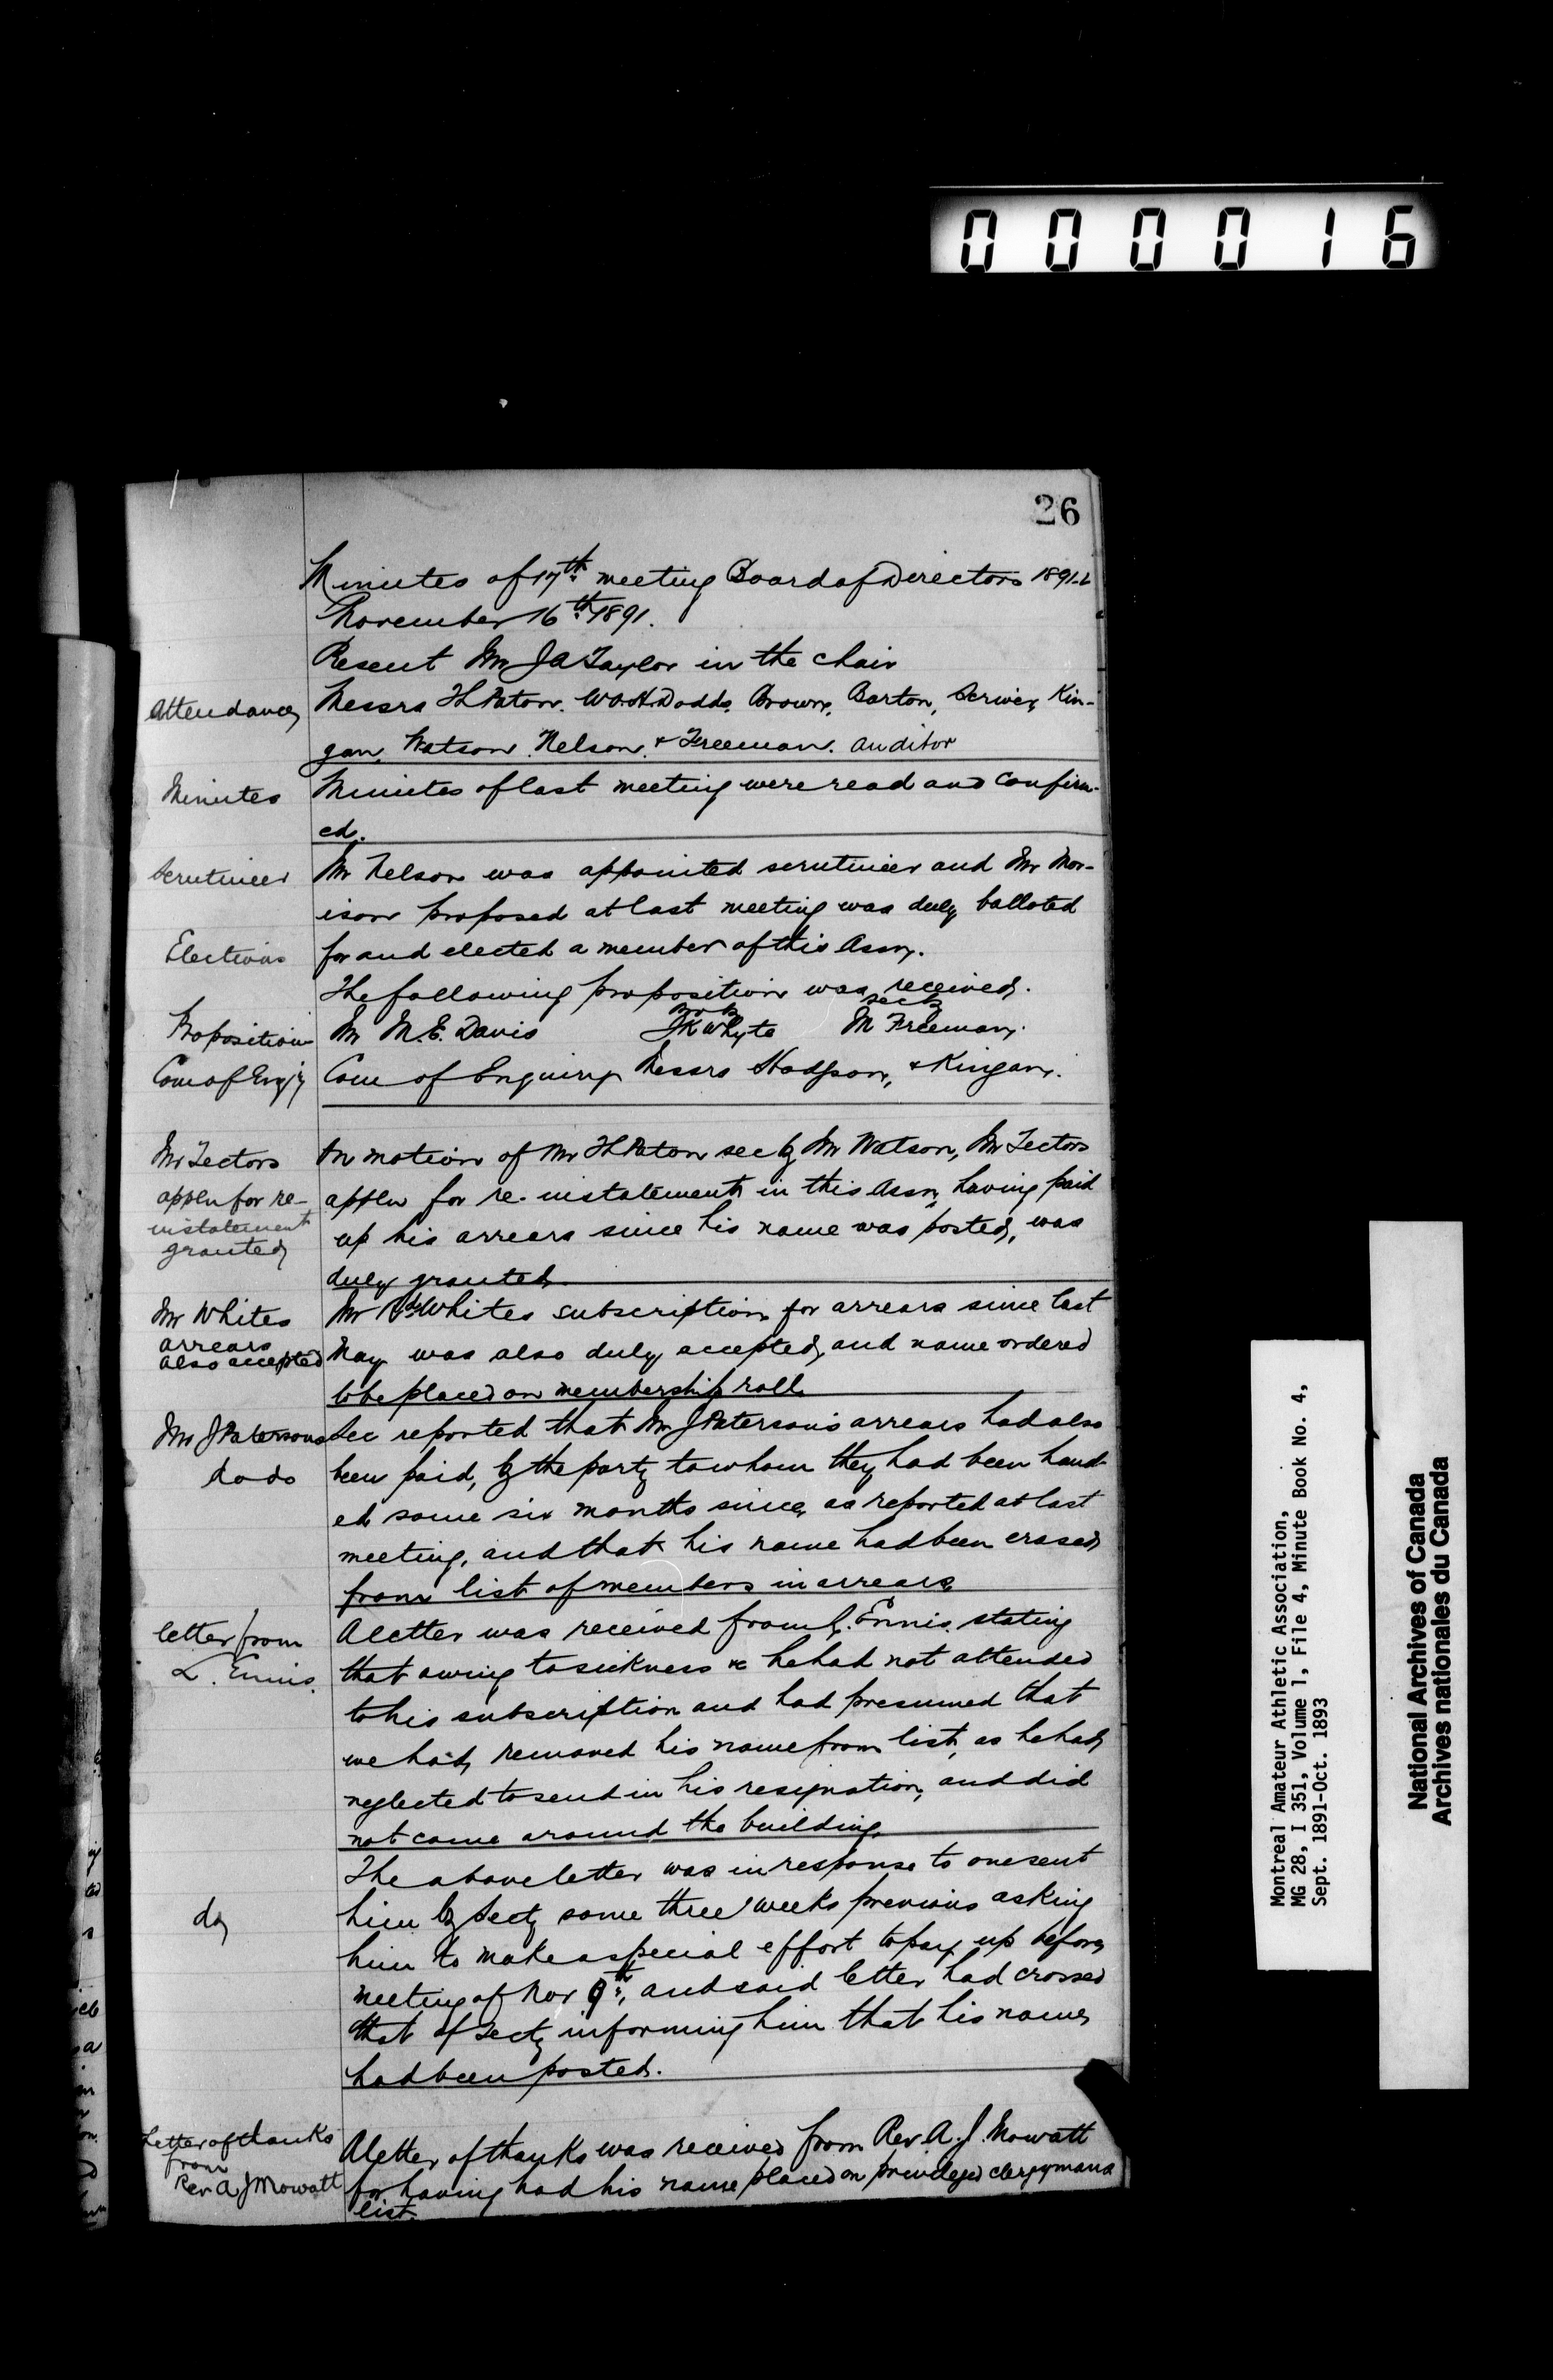 000016
26
Minutes of 17th meeting Board of Directors 1891-2
November 16th 1891.
Present Mr J A Taylor in the chair
Attendance
Messrs T L Paton. W A H Dodds. Brown, Barton, Scriver, Kin-
gan, Watson, Nelson, & Freeman. Auditor
Minutes
Minutes of last meeting were read and confirm-
ed.
Scrutineer
Mr Nelson was appointed scrutineer and Mr Mor-
ison proposed at last meeting was duly balloted
Elections
for and elected a member of this Assn.
The following proposition was received.
Proposition
Mr M. E. Davis
prop by
J K Whyte
sec by
M Freeman.
Com of Enq'y
Com of Enquiry Messrs Hodgson, & Kingan.
Mr Tectors
appln for re-
instatement
granted
On motion of Mr T L Paton sec by Mr Watson, Mr Tectors
appln for re-instatement in this Assn, having paid
up his arrears since his name was posted, was
duly granted.
Mr Whites
arrears
also accepted
Mr Whites subscription for arrears since last
May was also duly accepted, and name ordered
to be placed on membership roll.
Mr J Patersons
do do
Sec reported that Mr J Paterson's arrears had also
been paid, by the party to whom they had been hand-
ed some six months since, as reported at last
meeting, and that his name had been erased
from list of members in arrears
letter from
L. Ennis.
A letter was received from L. Ennis, stating
that owing to sickness &c he had not attended
to his subscription and had presumed that
we had removed his name from list, as he had
neglected to send in his resignation, and did
not come around the building.
do
The above letter was in response to one sent
him by Secty some three weeks previous asking
him to make a special effort to pay up before
meeting of Nov 9th, and said letter had crossed
that of Secty informing him that his name
had been posted.
Letter of thanks
from
Rev A J Mowatt
A letter of thanks was received from Rev. A. J. Mowatt
for having had his name placed on privileged clergymans
list.
Montreal Amateur Athletic Association,
MG 28, I 351, Volume 1, File 4, Minute Book No. 4,
Sept. 1891-Oct. 1893
National Archives of Canada
Archives nationales du Canada